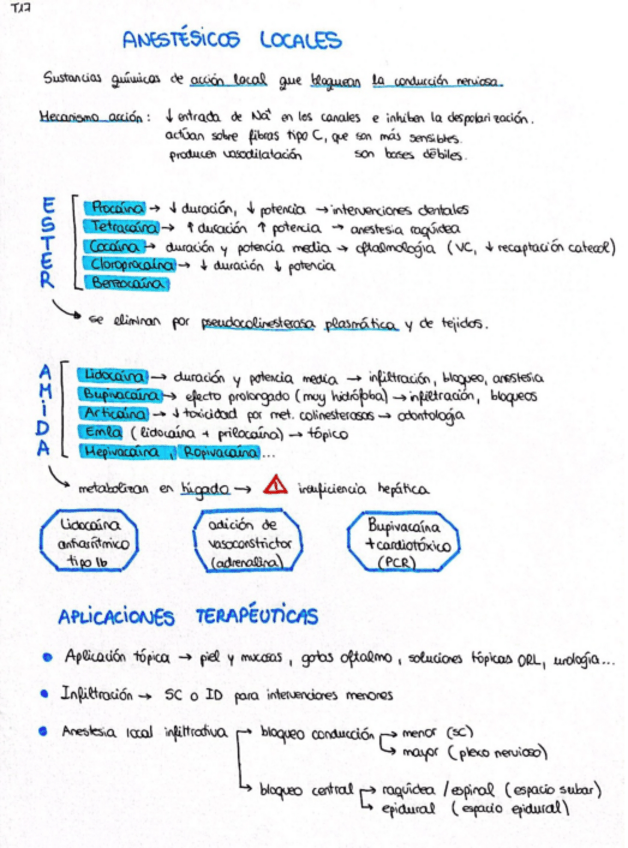 T.17
ANESTÉSICOS LOCALES
Sustancias químicas de acción local que bloquean la conducción nerviosa.
Mecanismo acción: ↓ entrada de Na⁺ en los canales e inhiben la despolarización.
actúan sobre fibras tipo C, que son más sensibles.
producen vasodilatación son bases débiles.
ESTER
Procaína → ↓ duración, ↓ potencia → intervenciones dentales
Tetracaína → ↑ duración ↑ potencia → anestesia raquídea
Cocaína → duración y potencia media → oftalmología (VC, ↓ recaptación catecol)
Cloroprocaína → ↓ duración ↓ potencia
Benzocaína
→ se eliminan por pseudocolinesterasa plasmática y de tejidos.
AMiDA
Lidocaína → duración y potencia media → infiltración, bloqueo, anestesia
Bupivacaína → efecto prolongado (muy hidrófoba) → infiltración, bloqueos
Articaína → ↓ toxicidad por met. colinesterasas → odontología
Emla (lidocaína + prilocaína) → tópico
Mepivacaína, Ropivacaína...
→ metabolizan en hígado → ⚠ insuficiencia hepática
Lidocaína
antiarrítmico
tipo Ib
adición de
vasoconstrictor
(adrenalina)
Bupivacaína
+ cardiotóxico
(PCR)
APLICACIONES TERAPÉUTICAS
• Aplicación tópica → piel y mucosas, gotas oftalmo, soluciones tópicas ORL, urología...
• Infiltración → SC o ID para intervenciones menores
• Anestesia local infiltrativa → bloqueo conducción → menor (sc)
→ mayor (plexo nervioso)
→ bloqueo central → raquídea / espinal (espacio subar)
→ epidural (espacio epidural)